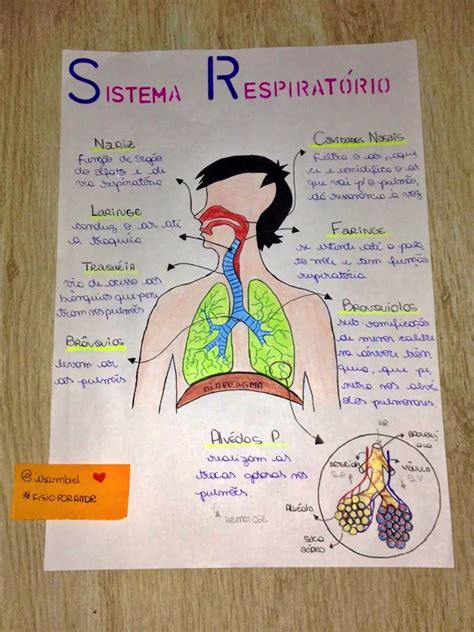 SISTEMA RESPIRATÓRIO
NARIZ
Função de órgão
do olfato e de
via respiratória
LARINGE
conduz o ar até
a traquéia
TRAQUÉIA
via de acesso aos
brônquios que pene
tram nos pulmões
BRÔNQUIOS
levam ar
aos pulmões
CAVIDADES NASAIS
Filtra o ar, aque
ce e umidifica o ar
que vai p/ o pulmão,
dá ressonância à voz
FARINGE
se estende até o pala
to mole e tem função
respiratória
BRONQUÍOLOS
sub-ramificação
de menor calibre
na árvore brôn
quia, que pe
nitra nos alvé
olos pulmonares.
DIAFRAGMA
ALVÉOLOS P.
realizam as
trocas gasosas nos
pulmões.
HEMATOSE
AR
BRONQUÍ
OLO
ARTÉRIA
S.A
VÊNULA
S.V
ALVÉOLO
SACO
AÉREO
@usambiel
#FISIOPORAMOR